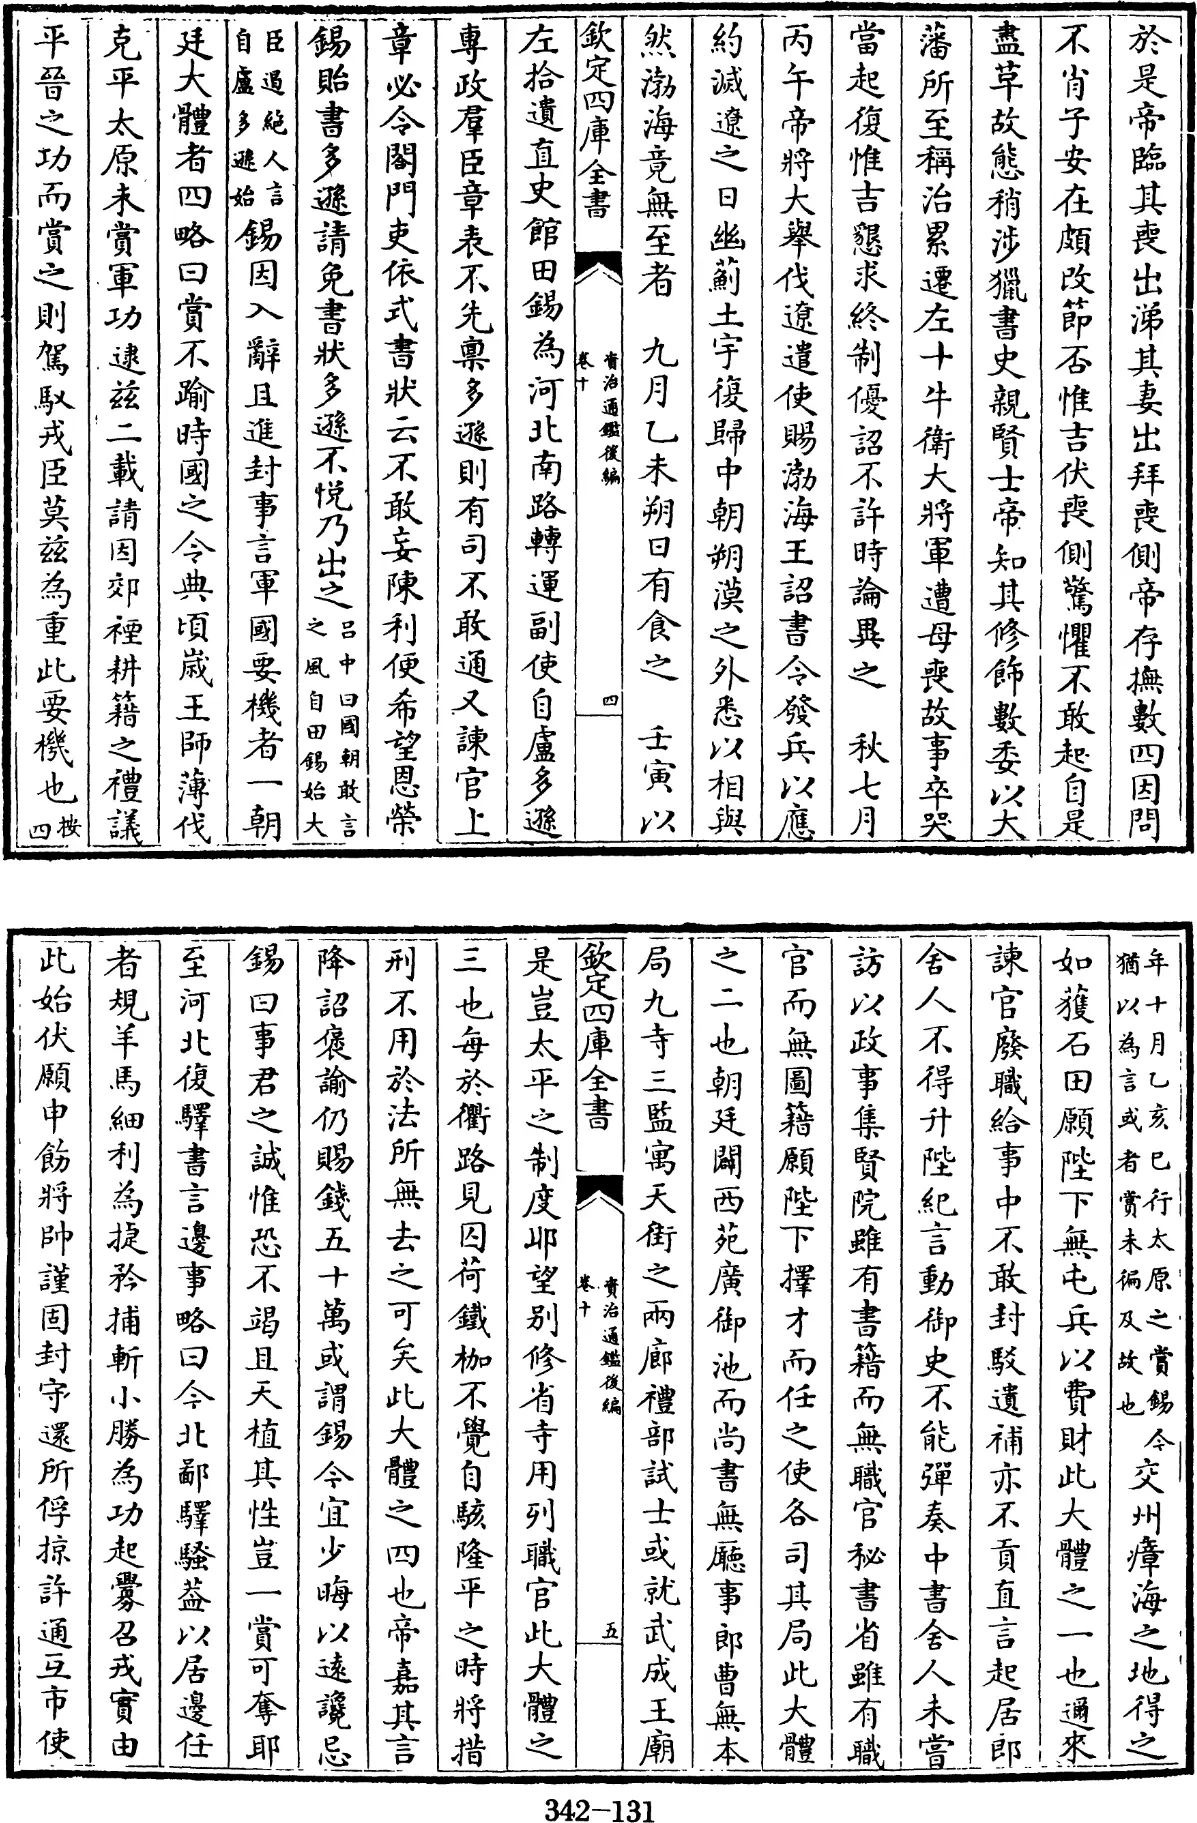 於是帝臨其喪出涕其妻出拜喪側帝存撫數四因問
不肖子安在頗改節否惟吉伏喪側驚懼不敢起自是
盡草故態稍涉獵書史親賢士帝知其修飾數委以大
藩所至稱治累遷左十牛衛大將軍遭母喪故事卒哭
當起復惟吉懇求終制優詔不許時論異之　秋七月
丙午帝將大舉伐遼遣使賜渤海王詔書令發兵以應
約滅遼之日幽薊土宇復歸中朝朔漠之外悉以相與
然渤海竟無至者　九月乙未朔日有食之　壬寅以
欽定四庫全書　資治通鑑後編　卷十　四
左拾遺直史館田錫為河北南路轉運副使自盧多遜
專政羣臣章表不先稟多遜則有司不敢通又諫官上
章必令閤門吏依式書狀云不敢妄陳利便希望恩榮
錫貽書多遜請免書狀多遜不悅乃出之呂中曰國朝敢言之風自田錫始大
臣過絶人言自盧多遜始錫因入辭且進封事言軍國要機者一朝
廷大體者四略曰賞不踰時國之令典頃嵗王師薄伐
克平太原未賞軍功逮兹二載請因郊禋耕籍之禮議
平晉之功而賞之則駕馭戎臣莫兹為重此要機也按四
年十月乙亥巳行太原之賞錫今猶以為言或者賞未徧及故也交州瘴海之地得之
如獲石田願陛下無屯兵以費財此大體之一也邇來
諫官廢職給事中不敢封駁遺補亦不貢直言起居郎
舍人不得升陛紀言動御史不能彈奏中書舍人未嘗
訪以政事集賢院雖有書籍而無職官秘書省雖有職
官而無圖籍願陛下擇才而任之使各司其局此大體
之二也朝廷闢西苑廣御池而尚書無廳事郎曹無本
局九寺三監寓天街之兩廊禮部試士或就武成王廟
欽定四庫全書　資治通鑑後編　卷十　五
是豈太平之制度耶望别修省寺用列職官此大體之
三也每於衢路見囚荷鐵枷不覺自駭隆平之時將措
刑不用於法所無去之可矣此大體之四也帝嘉其言
降詔褒諭仍賜錢五十萬或謂錫今宜少晦以遠讒忌
錫曰事君之誠惟恐不竭且天植其性豈一賞可奪耶
至河北復驛書言邊事略曰今北鄙驛騷葢以居邊任
者規羊馬細利為捷矜捕斬小勝為功起釁召戎實由
此始伏願申飭將帥謹固封守還所俘掠許通互市使
342-131